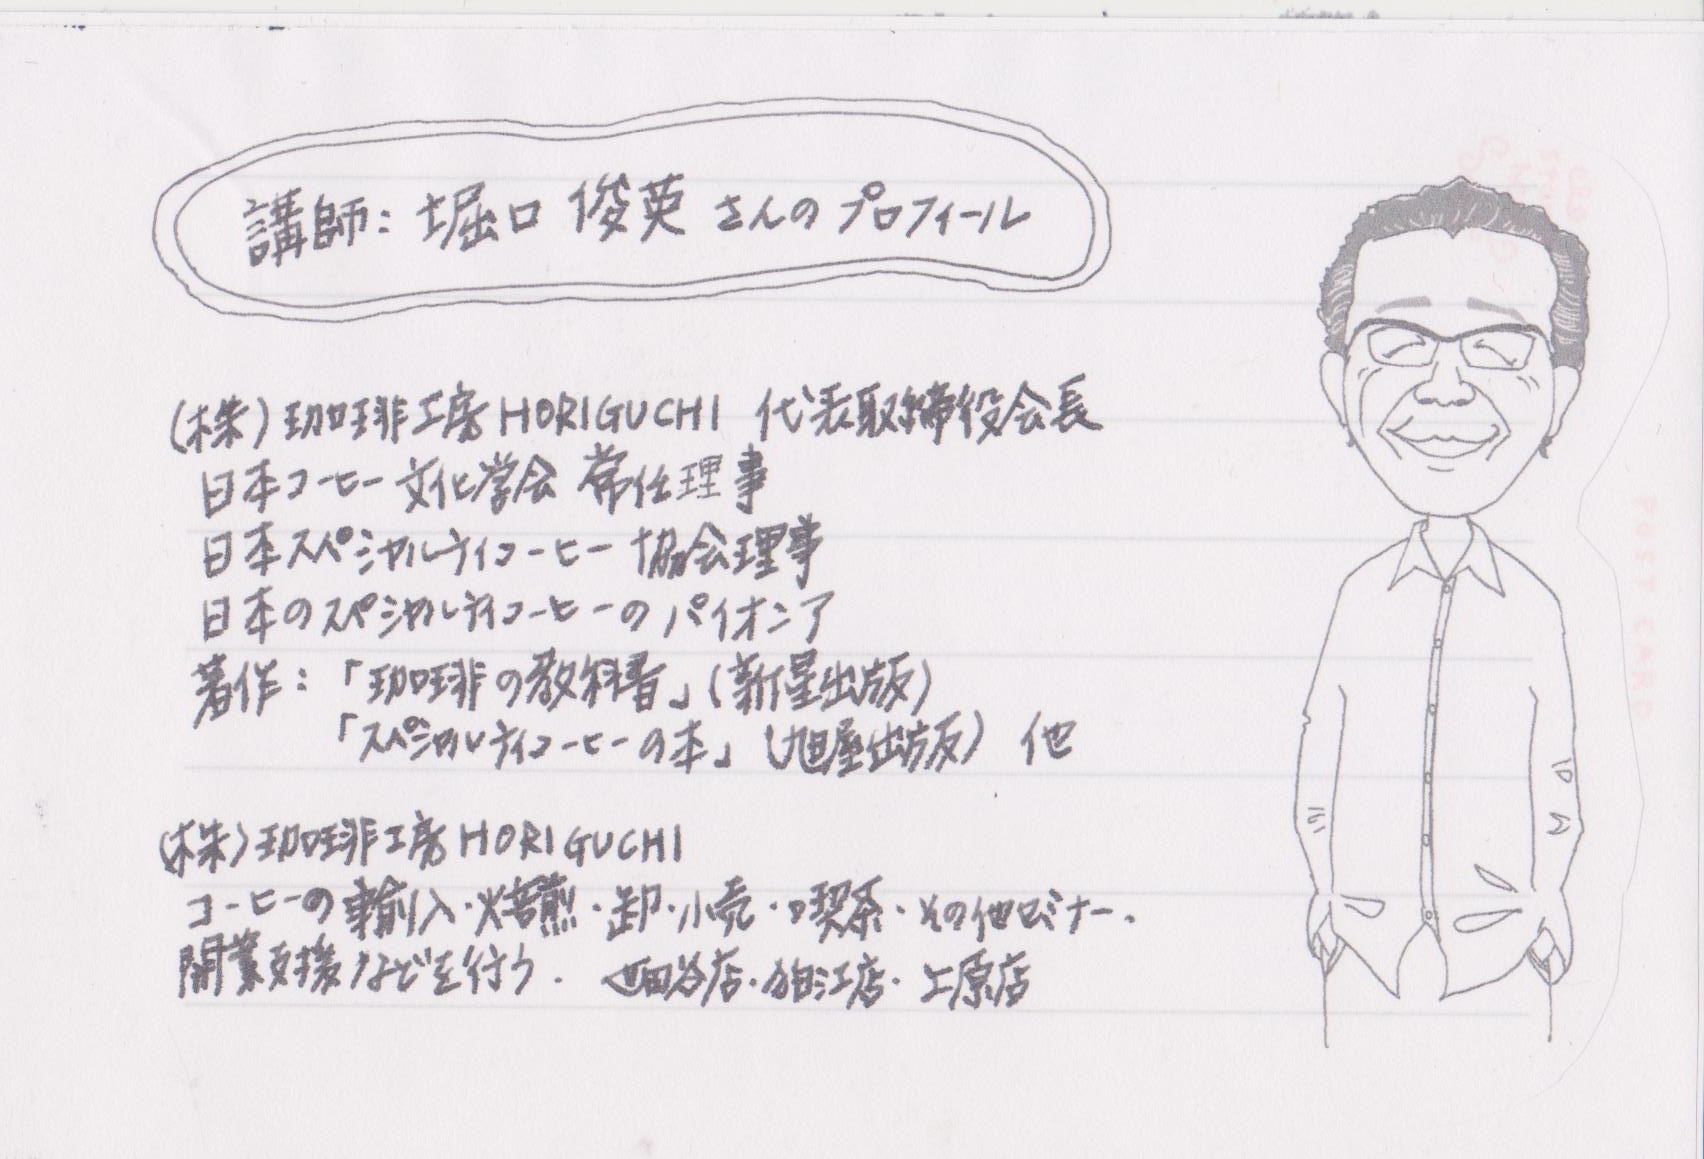 講師：堀口 俊英 さんの プロフィール
(株)珈琲工房HORIGUCHI 代表取締役会長
日本コーヒー文化学会 常任理事
日本スペシャルティコーヒー協会理事
日本のスペシャルティコーヒーのパイオニア
著作：「珈琲の教科書」(新星出版)
「スペシャルティコーヒーの本」(旭屋出版) 他
(株)珈琲工房HORIGUCHI
コーヒーの輸入・焙煎・卸・小売・喫茶・その他セミナー、
開業支援などを行う. 世田谷店・狛江店・上原店
POST CARD